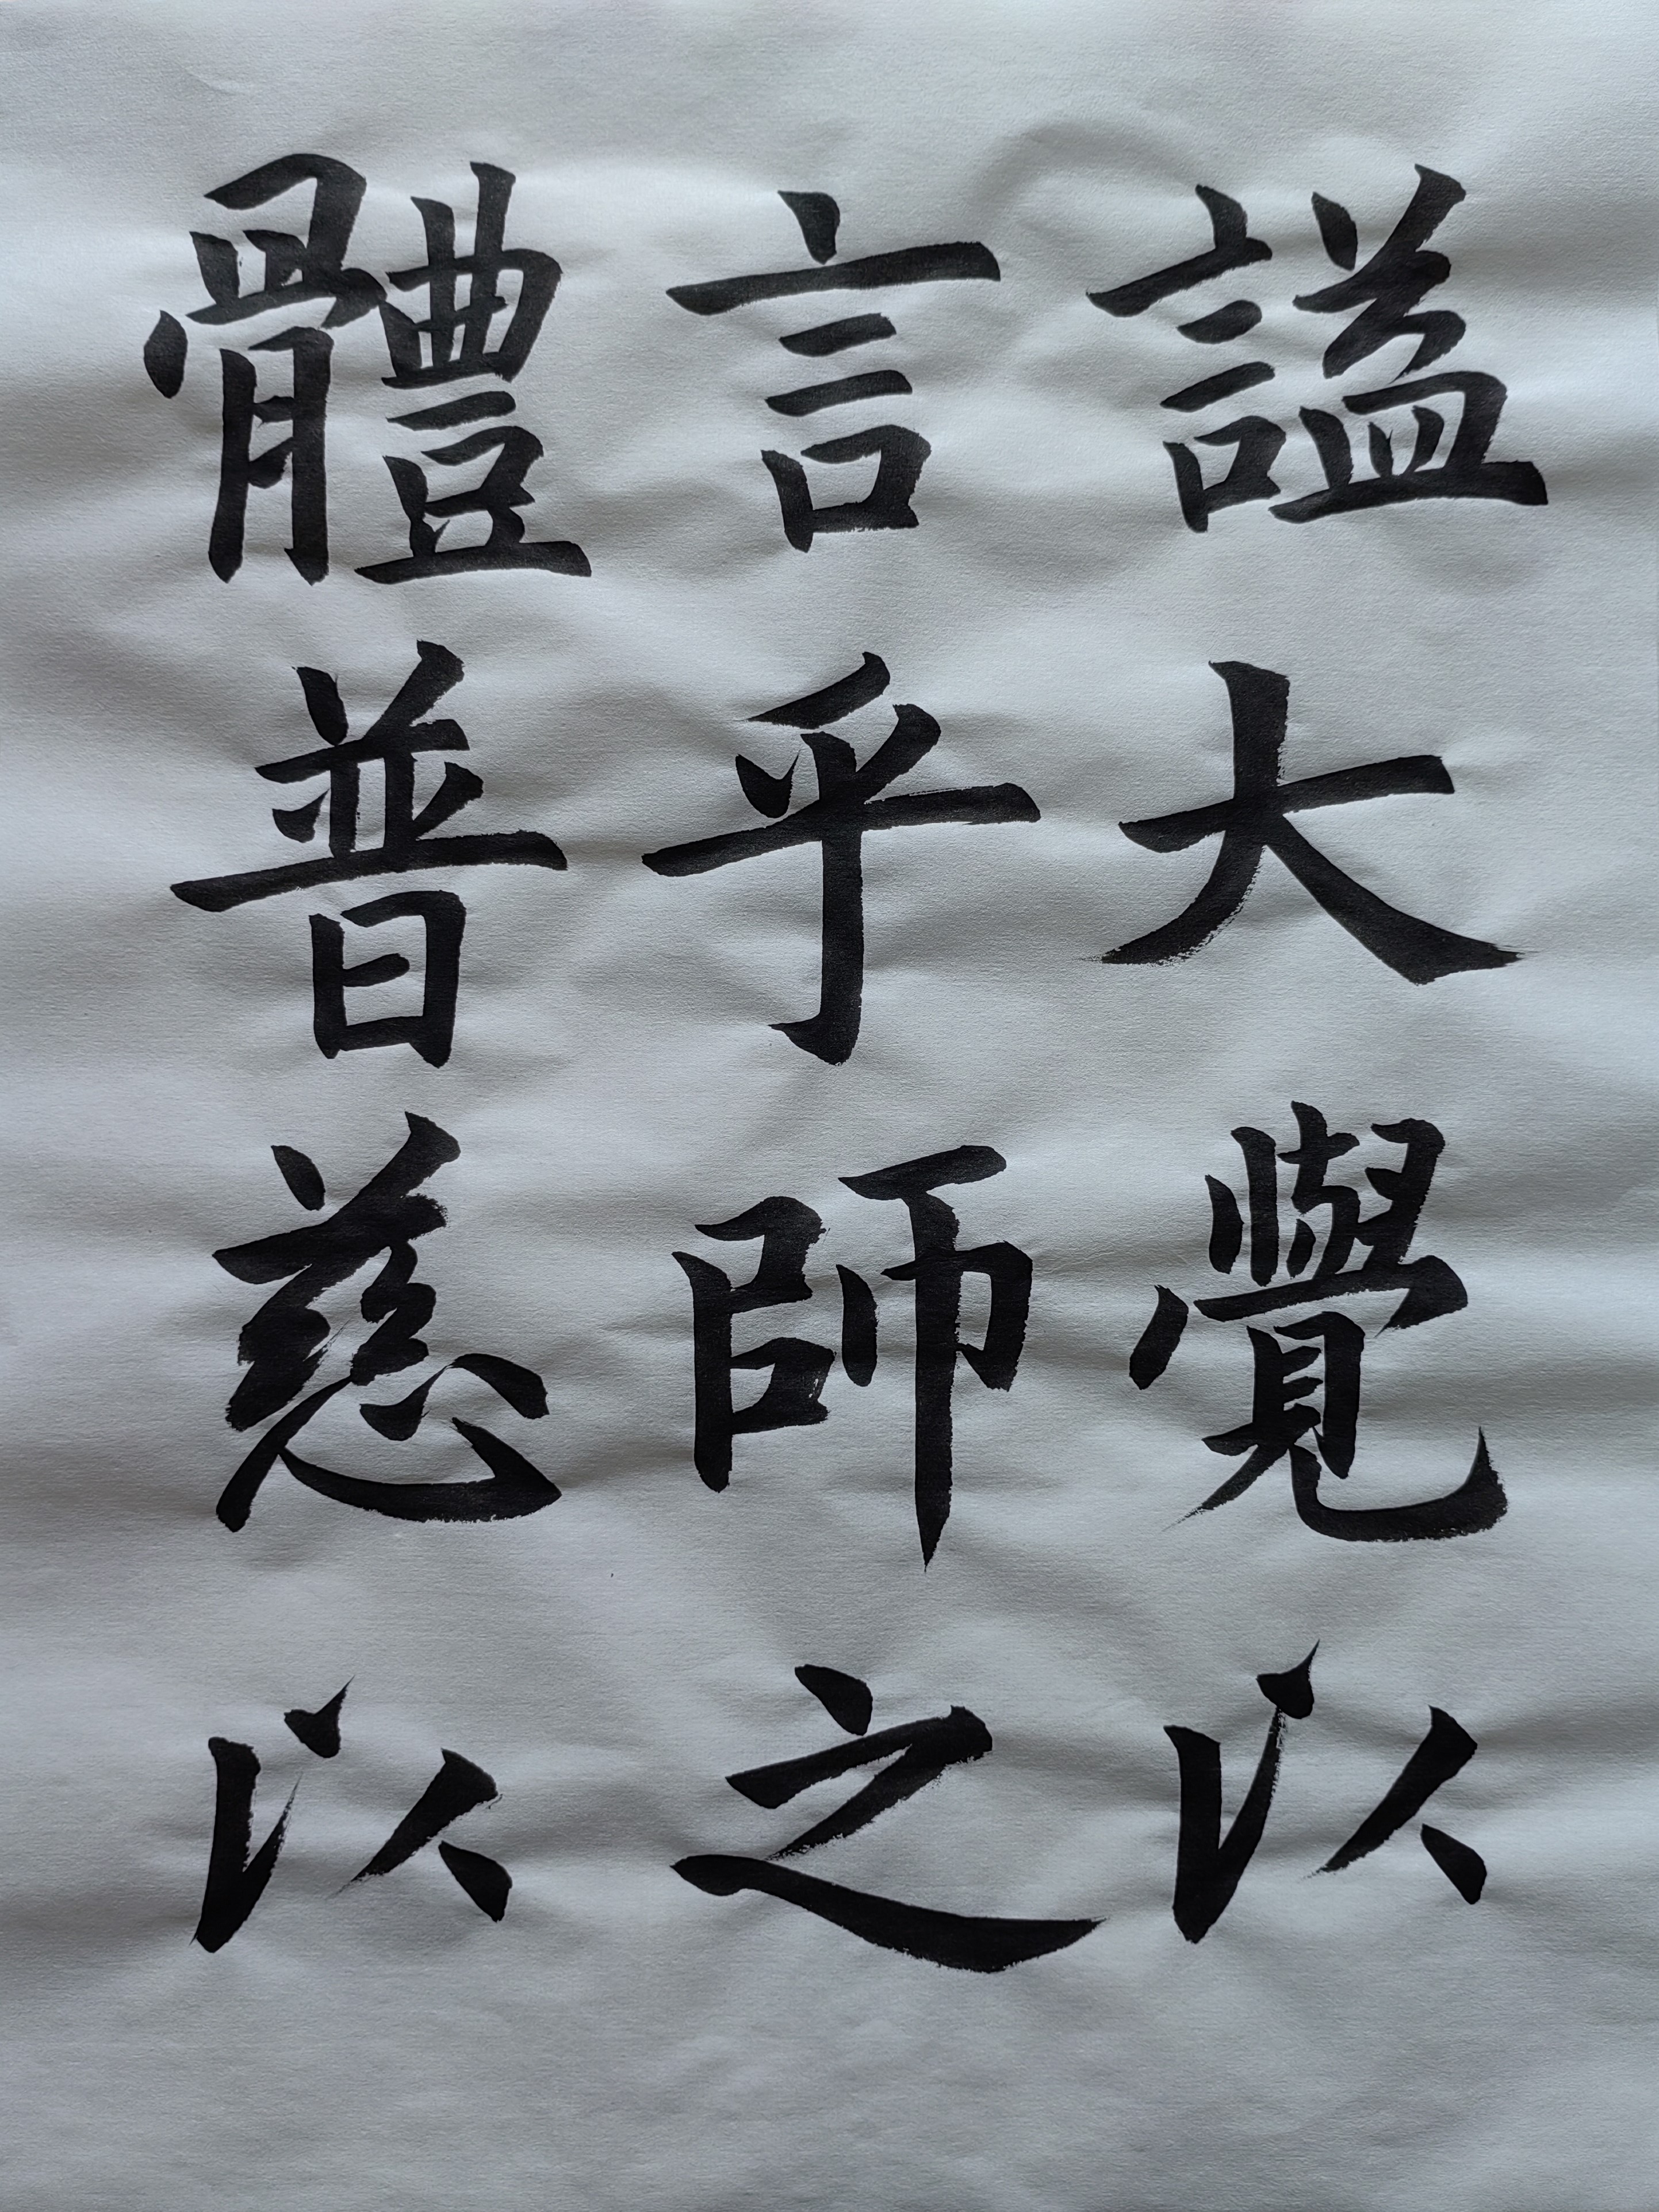 謚大覺以
言乎師之
體普慈以